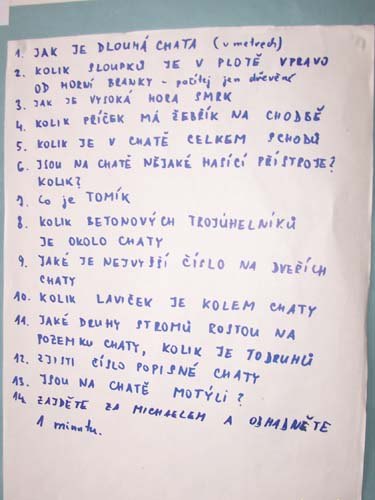 1. JAK JE DLOUHÁ CHATA (v metrech)
2. KOLIK SLOUPKŮ JE V PLOTĚ VPRAVO
OD HORNÍ BRANKY - počítej jen dřevěné
3. JAK JE VYSOKÁ HORA SMRK
4. KOLIK PŘÍČEK MÁ ŽEBŘÍK NA CHODBĚ
5. KOLIK JE V CHATĚ CELKEM SCHODŮ
6. JSOU NA CHATĚ NĚJAKÉ HASÍCÍ PŘÍSTROJE?
KOLIK?
7. Co je TOMÍK
8. KOLIK BETONOVÝCH TROJÚHELNÍKŮ
JE OKOLO CHATY
9. JAKÉ JE NEJVYŠŠÍ ČÍSLO NA DVEŘÍCH
CHATY
10. KOLIK LAVIČEK JE KOLEM CHATY
11. JAKÉ DRUHY STROMŮ ROSTOU NA
POZEMKU CHATY, KOLIK JE TO DRUHŮ
12. ZJISTI ČÍSLO POPISNÉ CHATY
13. JSOU NA CHATĚ MOTÝLI?
14. ZAJDĚTE ZA MICHAELEM A ODHADNĚTE
1 minutu.